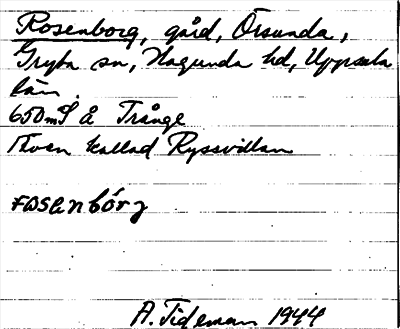 Rosenborg, gård, Örsunda,
Gryta sn, Hagunda hd, Uppsala
län.
650 m S å Trånge
Även kallad Ryssvillan
rωsenbórj
A. Tideman 1944